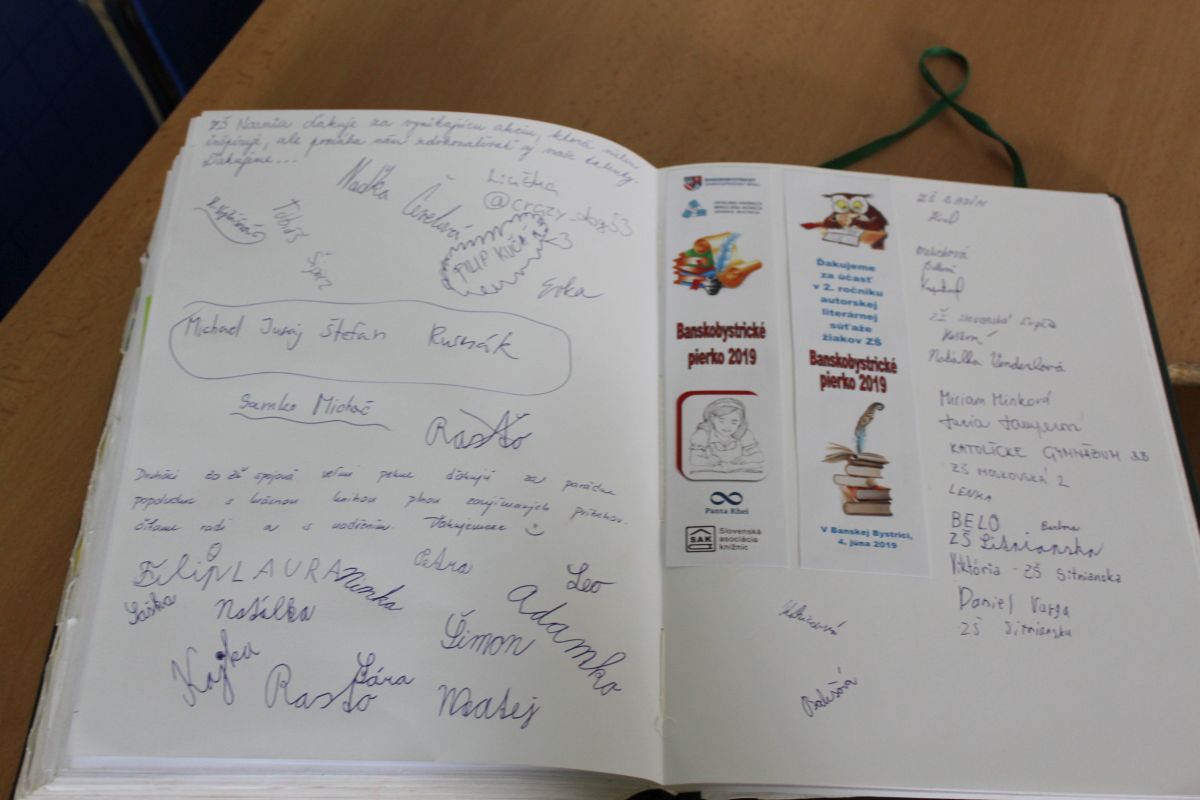 ZŠ Novania ďakuje za vynikajúcu akciu, ktorá nielen
inšpiruje, ale pomáha nám zdokonaľovať aj naše talenty.
Ďakujeme...
Naďka Čereňová
@crazy_dog53
Tobiáš
Špirz
FILIP KUČA <3
Evka
Michael Juraj Štefan Rusnák
Samko Michač
Rasťo
Druháci zo ZŠ Spojová veľmi pekne ďakujú za parádne
popoludnie s krásnou knihou plnou zaujímavých príbehov.
čítame radi a s nadšením. Ďakujeme
Filip LAURA Ninka Petra Leo
Saška Natálka Šimon Adamko
Kajka Rasťo Sára Matej
BANSKOBYSTRICKÝ
SAMOSPRÁVNY KRAJ
Banskobystrické
pierko 2019
Panta Rhei
SAK
Slovenská
asociácia
knižníc
Ďakujeme
za účasť
v 2. ročníku
autorskej
literárnej
súťaže
žiakov ZŠ
Banskobystrické
pierko 2019
V Banskej Bystrici,
4. júna 2019
ZŠ BADÍN
ZŠ Slovenská Ľupča
Natálka Venderlová
Miriam Minková
KATOLÍCKE GYMNÁZIUM BB
ZŠ MOSKOVSKÁ 2
LENKA
BELO
ZŠ Sitnianska
Viktória - ZŠ Sitnianska
Daniel Varga
ZŠ Sitnianska